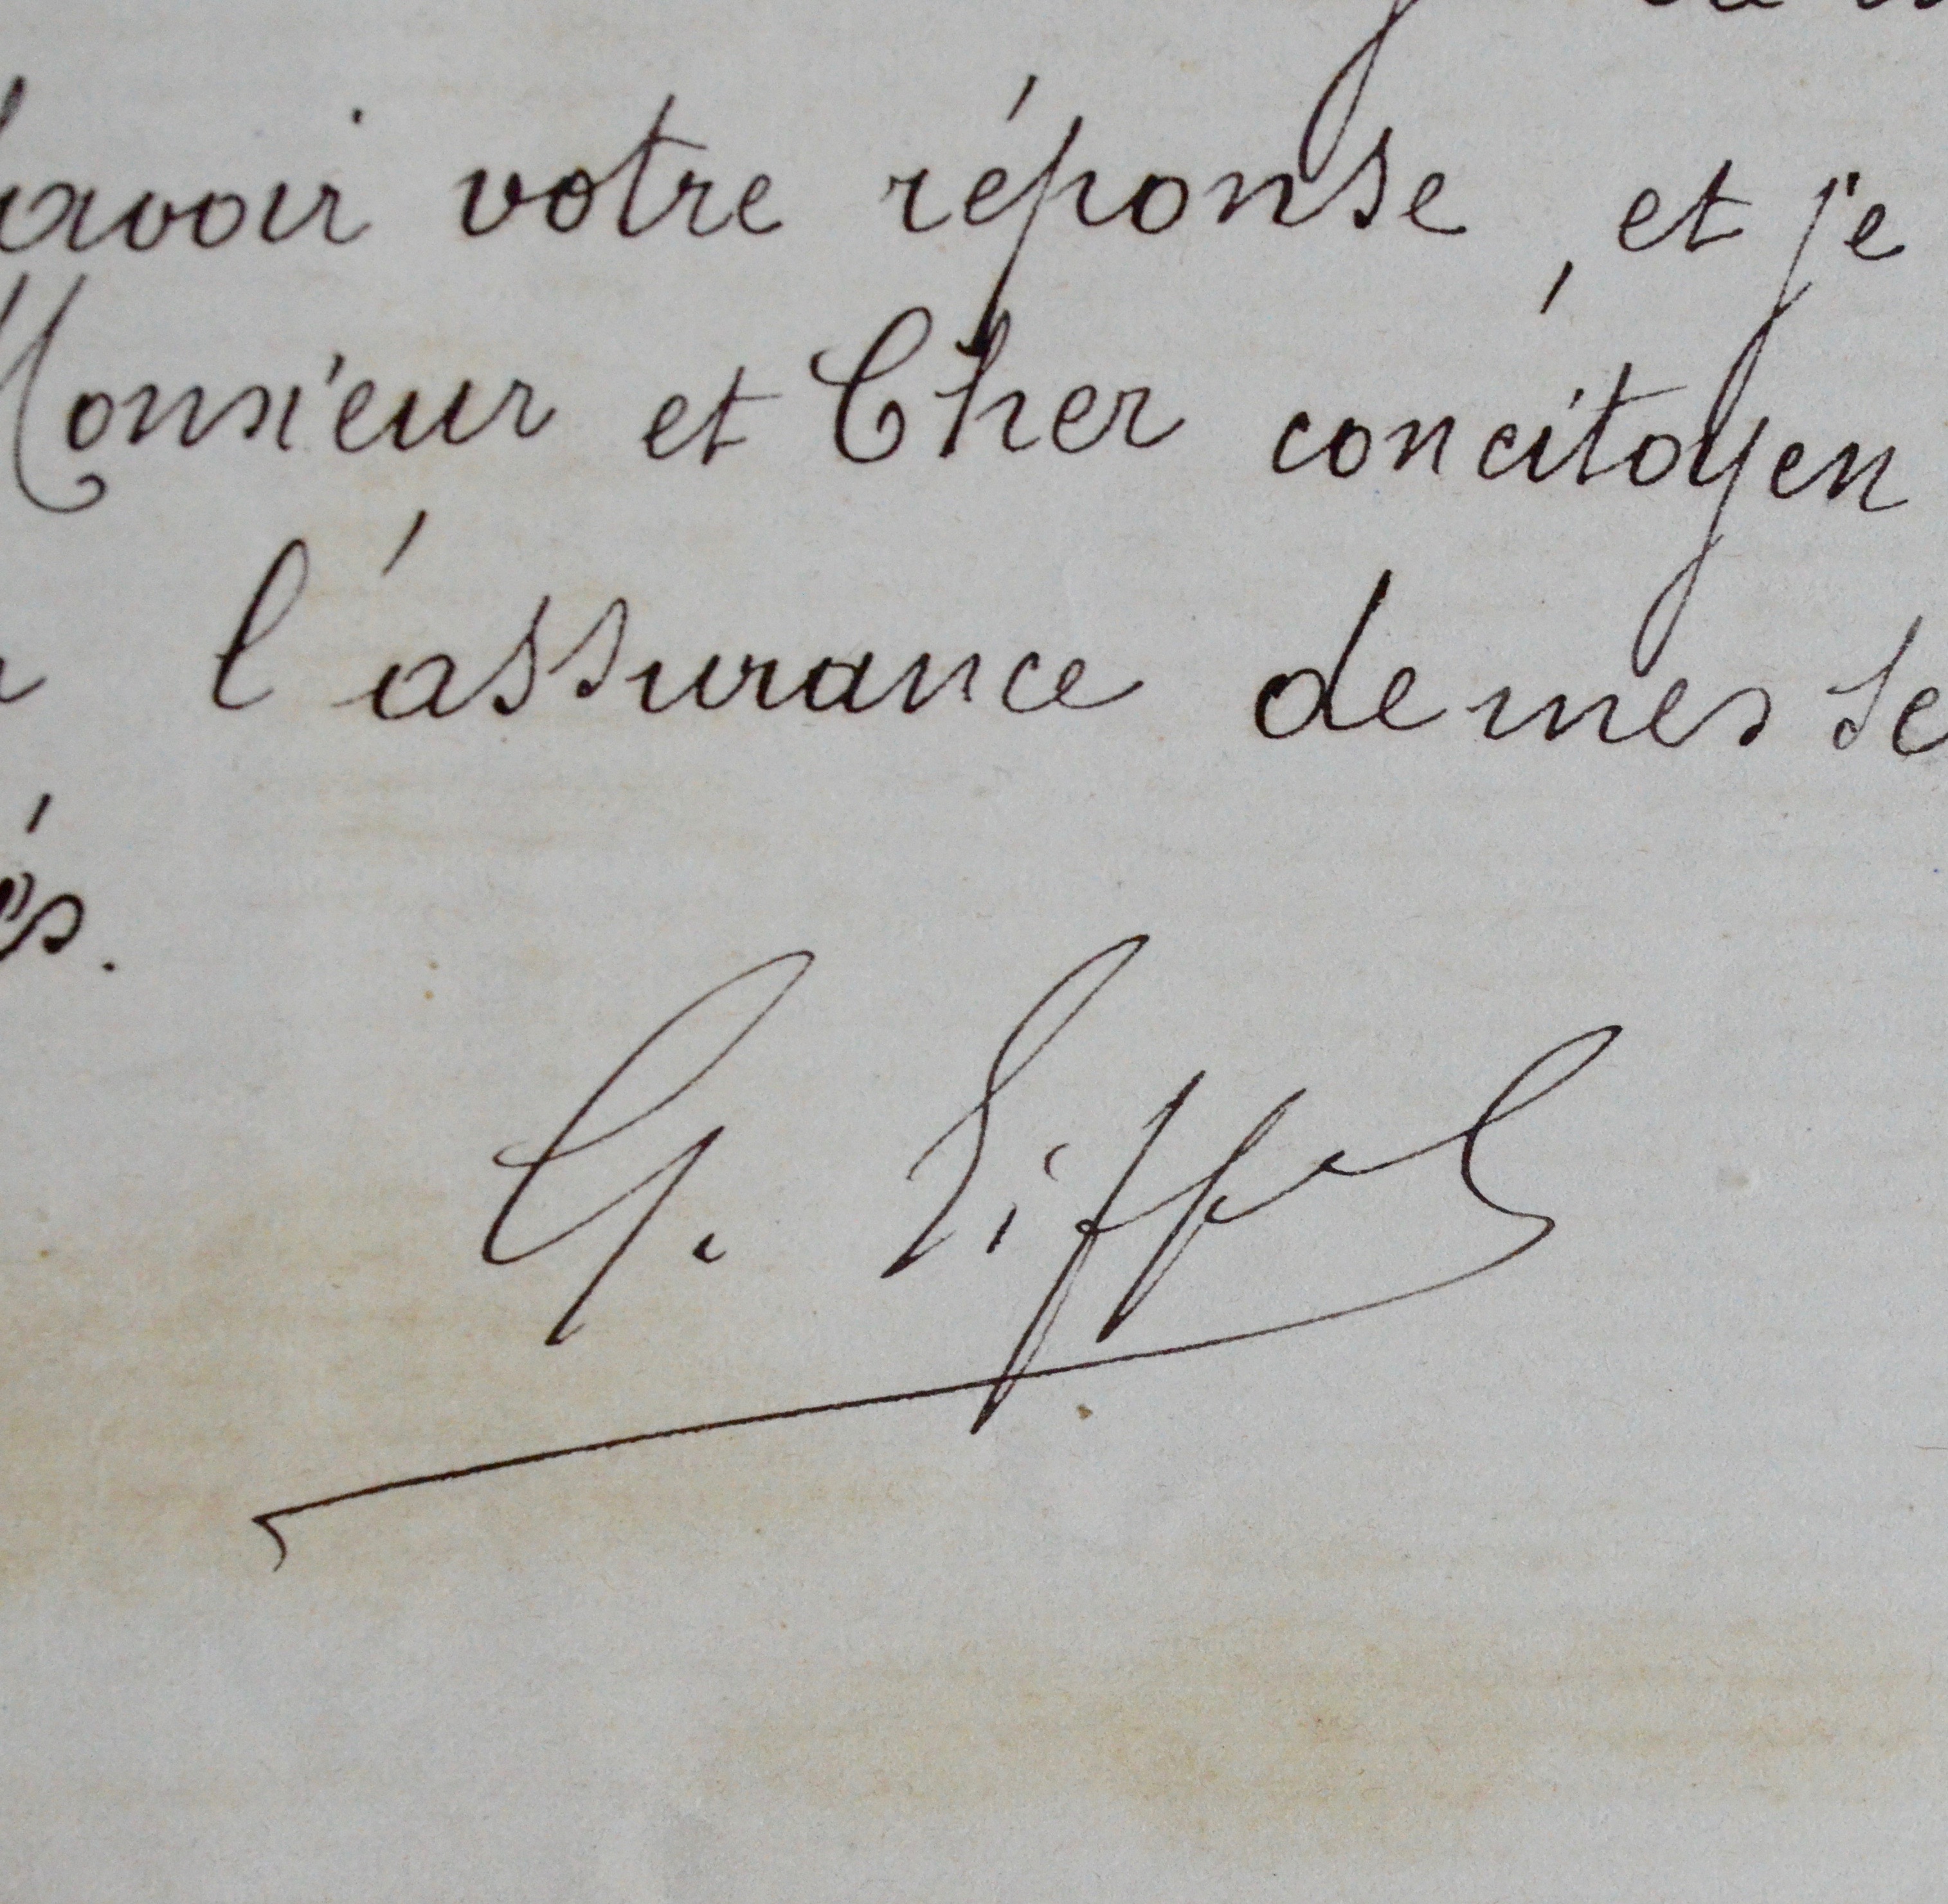 savoir votre réponse, et je
Monsieur et Cher concitoyen
l'assurance de mes se
és.
G. Eiffel